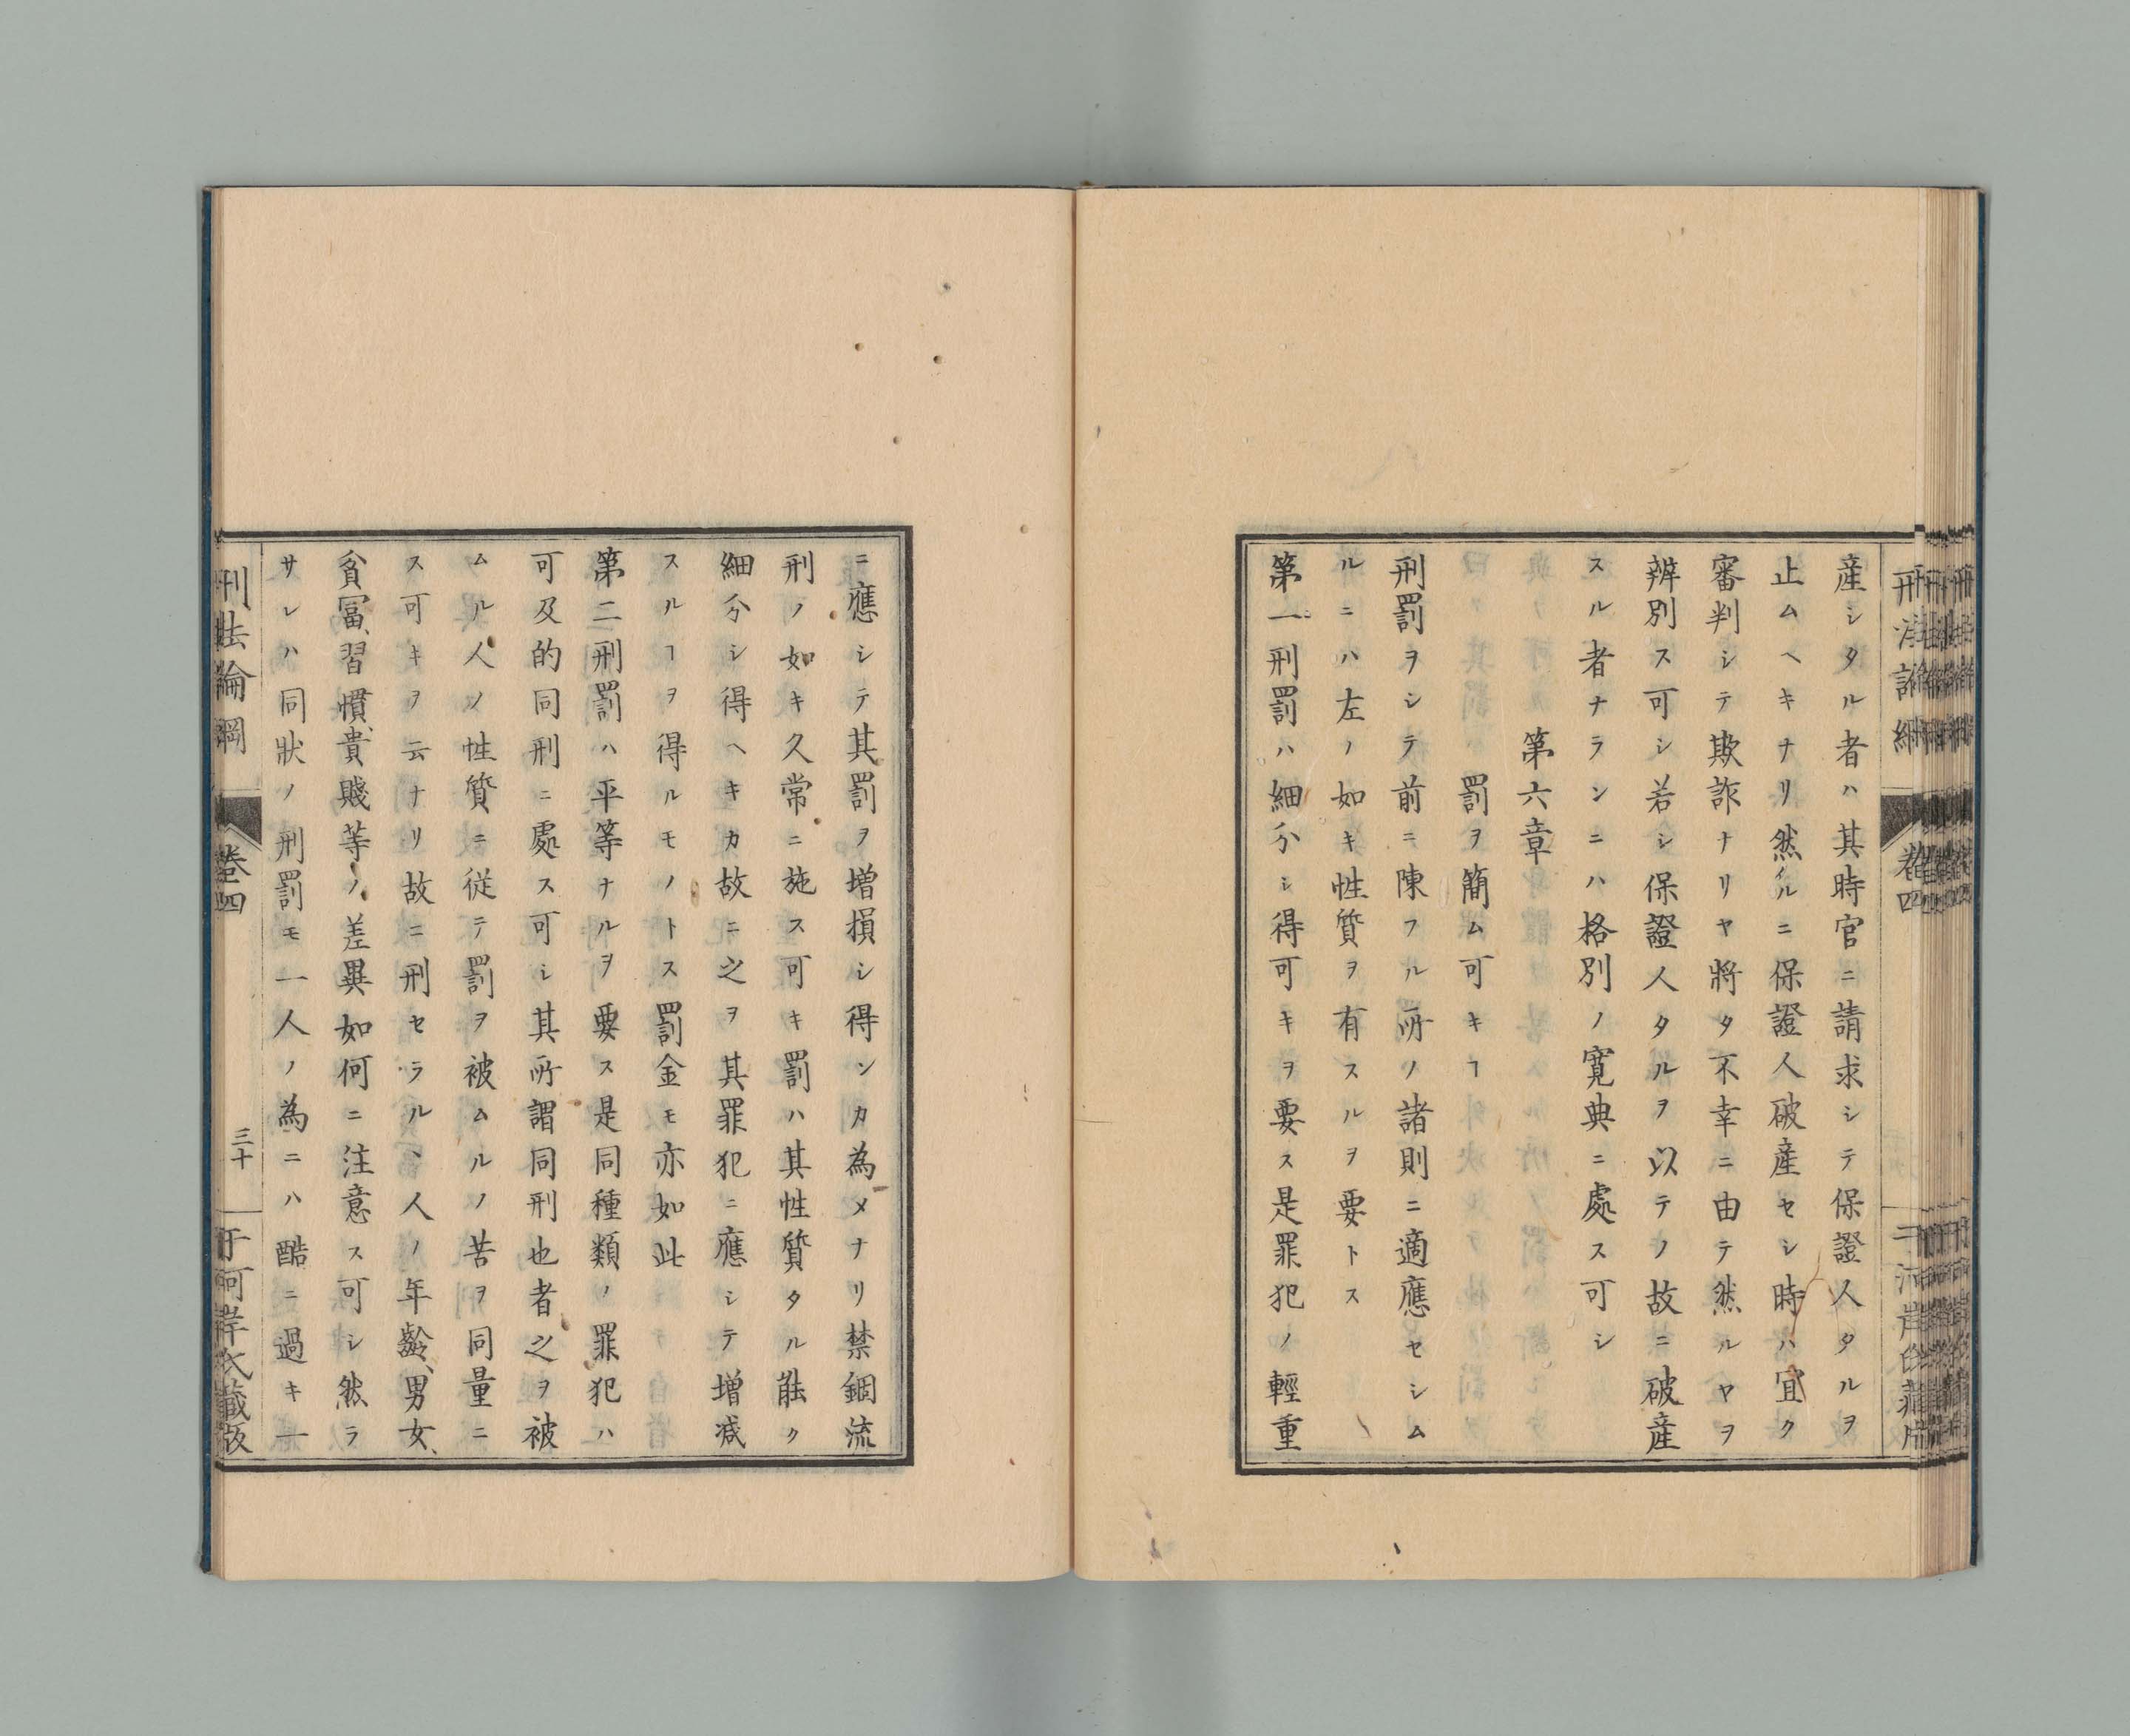 産シタル者ハ其時官ニ請求シテ保證人タルヲ
止ムヘキナリ然ルニ保證人破産セシ時ハ宜ク
審判シテ欺詐ナリヤ將タ不幸ニ由テ然ルヤヲ
辨別ス可シ若シ保證人タルヲ以テノ故ニ破産
スル者ナランニハ格別ノ寛典ニ處ス可シ
第六章
罰ヲ簡ム可キヿ
刑罰ヲシテ前ニ陳フル所ノ諸則ニ適應セシム
ルニハ左ノ如キ性質ヲ有スルヲ要トス
第一刑罰ハ細分シ得可キヲ要ス是罪犯ノ輕重
ニ應シテ其罰ヲ増損シ得ンカ為メナリ禁錮流
刑ノ如キ久常ニ施ス可キ罰ハ其性質タル能ク
細分シ得ヘキカ故ニ之ヲ其罪犯ニ應シテ増减
スルヿヲ得ルモノトス罰金モ亦如此
第二刑罰ハ平等ナルヲ要ス是同種類ノ罪犯ハ
可及的同刑ニ處ス可シ其所謂同刑也者之ヲ被
ムル人ノ性質ニ従テ罰ヲ被ムルノ苦ヲ同量ニ
ス可キヲ云ナリ故ニ刑セラル、人ノ年齡、男女、
貧冨、習慣、貴賤等ノ差異如何ニ注意ス可シ然ラ
サレハ同狀ノ刑罰モ一人ノ為ニハ酷ニ過キ一
刑法論綱
卷四
三十
于河岸氏藏版